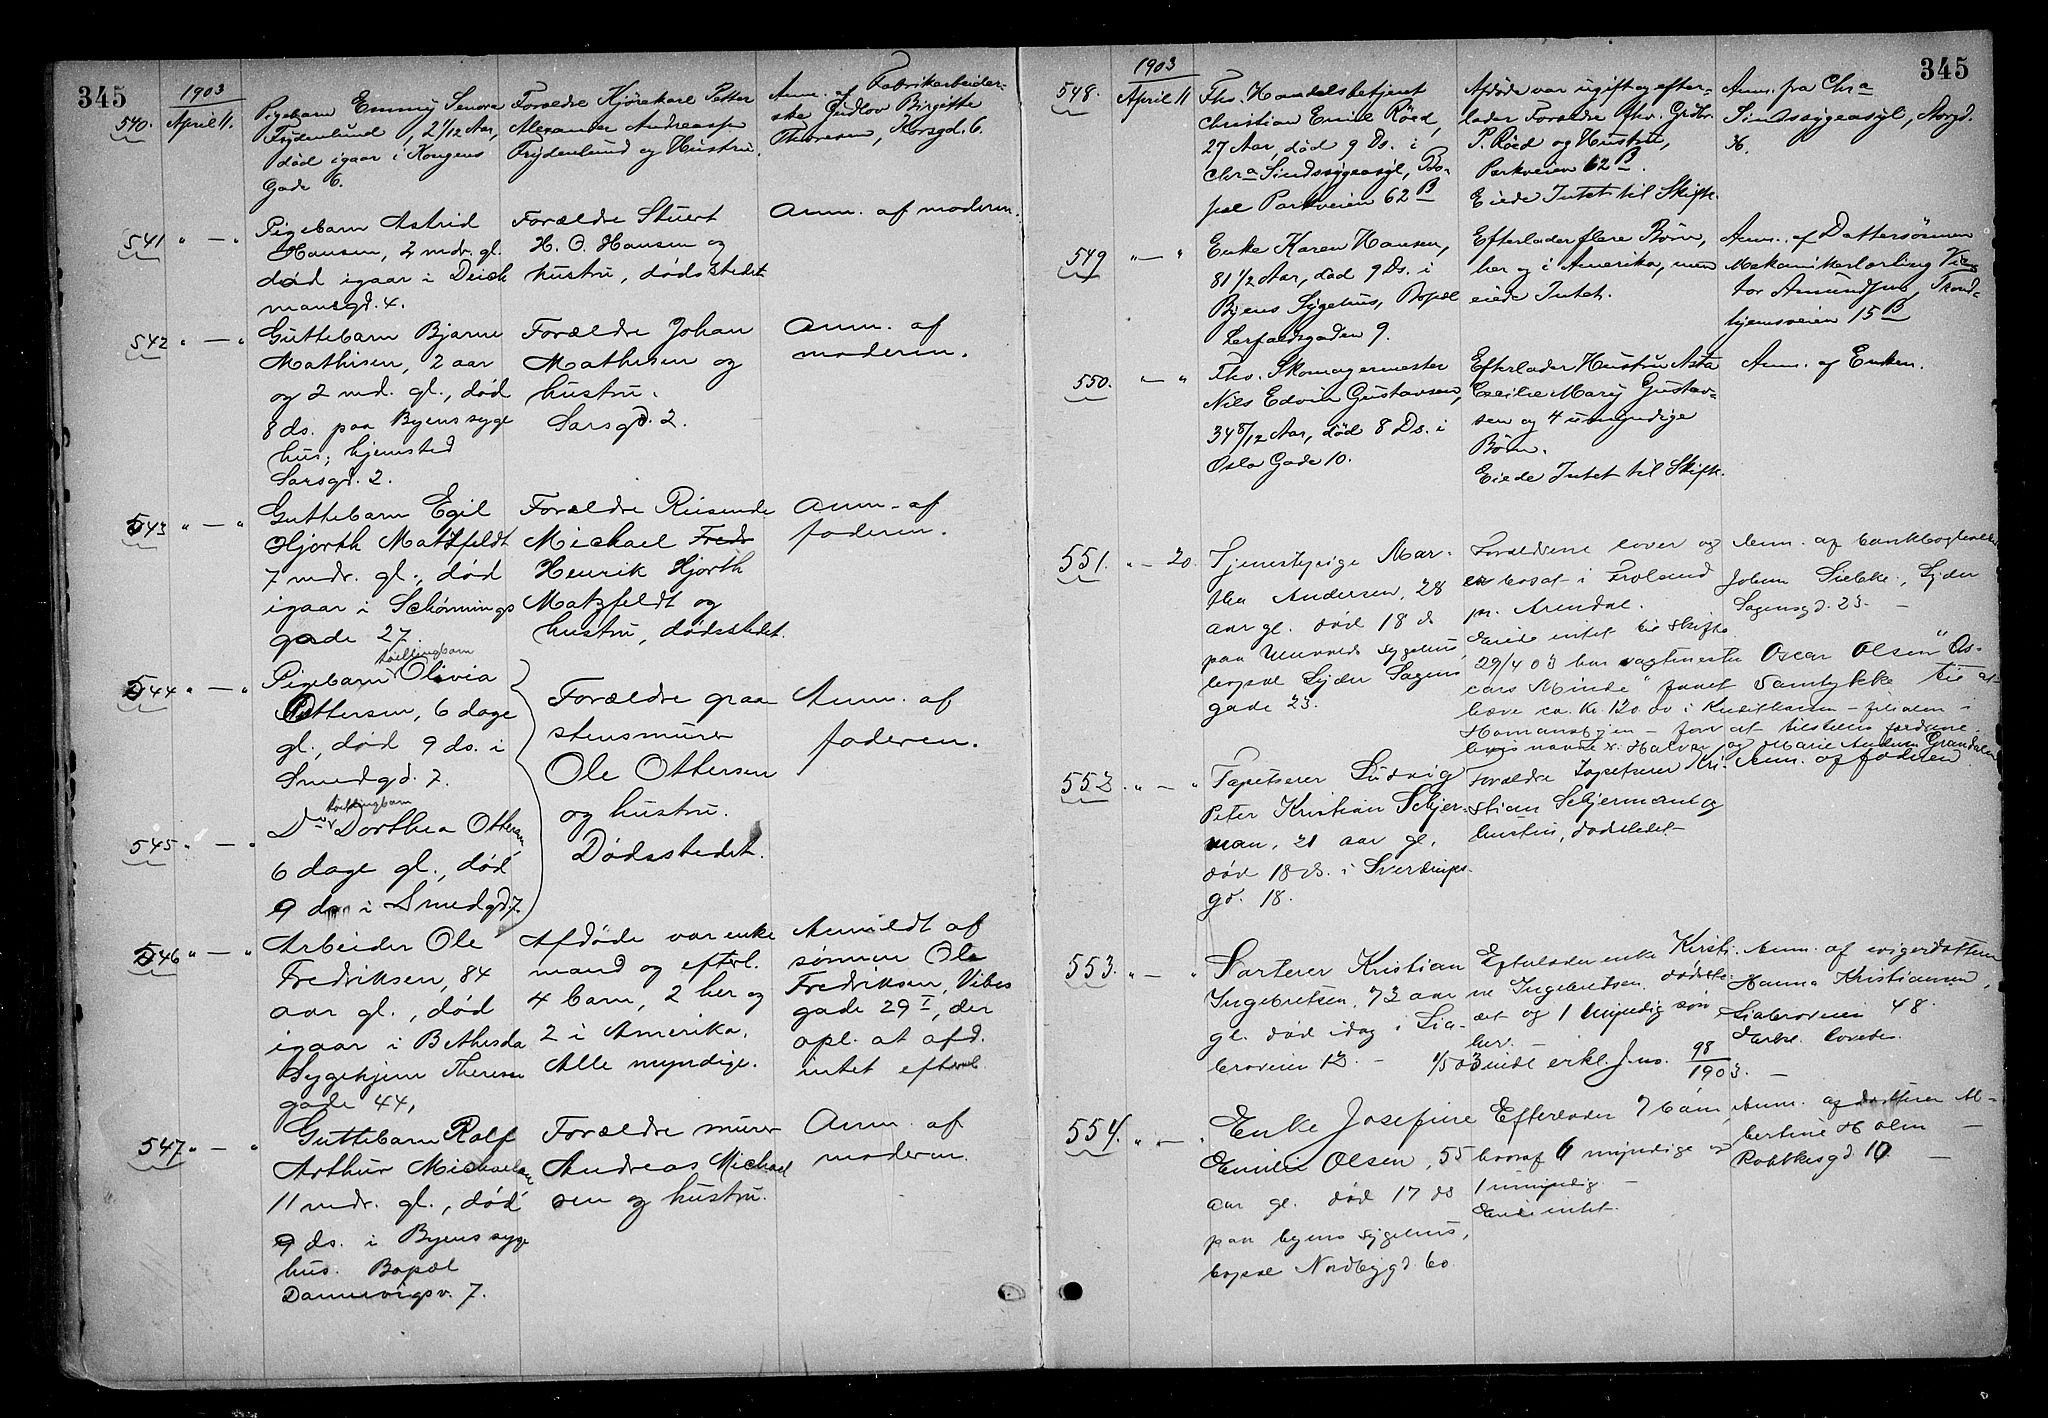 345
1903
540. April 11.
Pigebarn Emmy Senora
Frydenlund, 2 1/12 Aar,
død igaar i Kongens
Gade 6.
Forældre Kjørekarl Petter
Alexander Andreassen
Frydenlund og Hustru.
Anm. af Fabrikarbeider-
ske Gudlov Birgitte
Thoresen, Korsgd. 6.
541 " — "
Pigebarn Astrid
Hansen, 2 mdr. gl.
død igaar i Deich
mansgd. 4.
Forældre Stuert
H. O. Hansen og
hustru, dødsstedet
Anm. af moderen.
542 " — "
Guttebarn Bjarne
Mathisen, 2 aar
og 2 md. gl., død
8 ds. paa Byens syge
hus; hjemsted
Sarsgd. 2.
Forældre Johan
Mathisen og
hustru.
Sarsgd. 2.
Anm. af
moderen.
543 " — "
Guttebarn Egil
Hjorth Matzfeldt
7 mdr. gl., død
igaar i Schønnings
gade 27.
Forældre Reisende
Michael Fredr
Henrik Hjorth
Matzfeldt og
hustru, dødsstedet.
Anm. af
faderen.
544 " — "
tvillingbarn
Pigebarn Olivia
Ottersen, 6 dage
gl., død 9 ds. i
Smedgd. 7.
Forældre graa
stensmurer
Ole Ottersen
og hustru.
Dødsstedet.
Anm. af
faderen.
545 " — "
tvillingbarn
Do Dorthea Ottersen,
6 dage gl., død
9 ds. i Smedgd. 7.
546 " — "
Arbeider Ole
Fredriksen, 84
aar gl., død
igaar i Bethesda
Sygehjem Therese
gade 44,
Afdøde var enke
mand og efterl.
4 barn, 2 her og
2 i Amerika.
Alle myndige.
Anmeldt af
sønnen Ole
Fredriksen, Vibes
gade 29 I, der
opl. at afd.
intet efterl.
547 " — "
Guttebarn Rolf
Arthur Michaelsen
11 mdr. gl., død
9 ds. i Byens syge
hus. Bopæl
Dannevigsv. 7.
Forældre murer
Andreas Michael
sen og hustru.
Anm. af
moderen.
345
1903
548. April 11
Fhv. Handelsbetjent
Christian Emil Røed,
27 Aar, død 9 Ds. i
Chra Sindssygeasyl, Bo-
pæl Parkveien 62 B
Afdøde var ugift og efter-
lader Forældre Fhv. Grdbr.
P. Røed og Hustru,
Parkveien 62 B.
Eiede Intet til Skifte.
Anm. fra Chra
Sindssygeasyl, Storgd.
36.
549 " — "
Enke Karen Hansen,
81 1/2 Aar, død 9 Ds. i
Byens Sygehus, Bopæl
Lerfaldsgaden 9.
Efterlader flere Børn,
her og i Amerika, men
eiede Intet.
Anm. af Dattersønnen
Mekanikerlærling Vic-
tor Amundsen, Trond-
hjemsveien 15 B
550. " — "
Fhv. Skomagermester
Nils Edvin Gustavsen,
34 8/12 Aar, død 8 Ds. i
Oslo Gade 10.
Efterlader Hustru Asta
Cecilie Mary Gustav-
sen og 4 umyndige
Børn.
Eiede Intet til Skifte.
Anm. af Enken.
551. " — 20.
Tjenestepige Mar-
tha Andersen, 28
aar gl. død 18 ds
paa Ullevaals sygehus,
bopæl Lyder Sagens
gade 23.
Forældrene lever og
er bosat i Froland
pr. Arendal.
Eiede intet til skifte.
29/4 03 har vagtmester Oscar Olsen "Os-
cars Minde" faaet Samtykke til at
hæve ca. kr. 120.00 i
Homansbyen – for at tilstilles forældrene.
navne er Halvor og Marie Andersen Grandalen
Anm. af bankbogholder
Johan Siebke, Lyder
Sagensgd. 23. –
552. " — "
Tapetserer Ludvig
Peter Kristian Schjer-
man, 21 aar gl.
død 18 ds. i Sverdrups-
gd. 18.
Forældre Tapetserer Kri-
stian Schjerman og
hustru, dødstedet
Anm. af faderen
553. " — "
Sorterer Kristian
Ingebretsen, 73 aar
gl. død idag i Lia-
broveien 13. –
Efterlader enke Kirsti-
ne Ingebretsen, dødste-
det og 1 myndig søn
her. –
1/5 03 indl. erkl. J.no. 98/1903. –
Anm. af svigerdatteren
Hanna Kristiansen,
Liabroveien 48.
Eerkl. lovedes.
554. " — "
Enke Josefine
Emilie Olsen, 55
aar gl. død 17 ds
paa byens sygehus,
bopæl Nordbygd. 60.
Efterlader 7 barn,
hvoraf 6 myndige og
1 umyndig. –
Eiede intet.
Anm. af datteren Al-
bertine Holm –
Rathkesgd 10 –